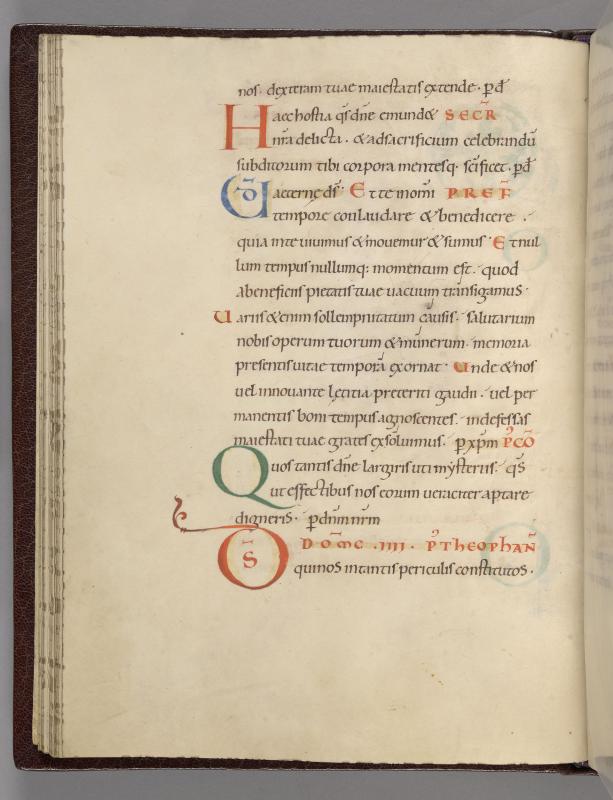 nos. dexteram tuae maiestatis extende. p̲ dñ
Haec hostia q̃s dñe emund& SECR̃
nr̃a delicta. & ad sacrificium celebrandũ
subditorum tibi corpora mentesq. sc̃ificet. p̲ dñ
UD̃ aeterne ds̃. Et te in omni PREF
tempore conlaudare & benedicere.
quia in te uiuimus & mouemur & sumus. Et nul
lum tempus nullumq; momentum est. quod
a beneficiis pietatis tuae uacuum transigamus.
Uariis &enim sollempnitatum causis. salutarium
nobis operum tuorum & munerum. memoria
presentis uitae tempora exornat. Unde & nos
uel innouante lętitia preteriti gaudii. uel per
manentis boni tempus agnoscentes. indefessas
maiestati tuae grates exsoluimus. p̲ xp̃m P̾CÕ
Quos tantis dñe largiris uti mysteriis. q̃s
ut effectibus nos eorum ueraciter aptare
digneris. p̲ dñm nr̃m
DOM̃C .IIII. P̾ THEOPHAÑ
DS̃ qui nos in tantis periculis constitutos.